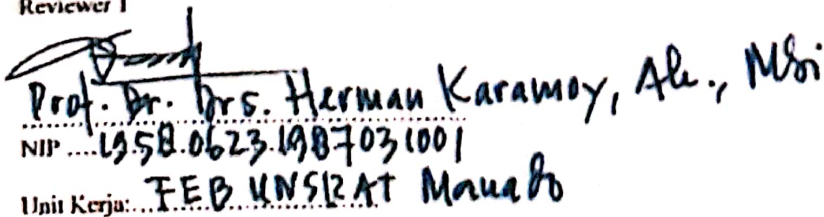 Reviewer 1
Prof. Dr. Drs. Herman Karamoy, Ak., MSi
NIP ....19580623 198703 1001
Unit Kerja:...FEB UNSRAT Manado